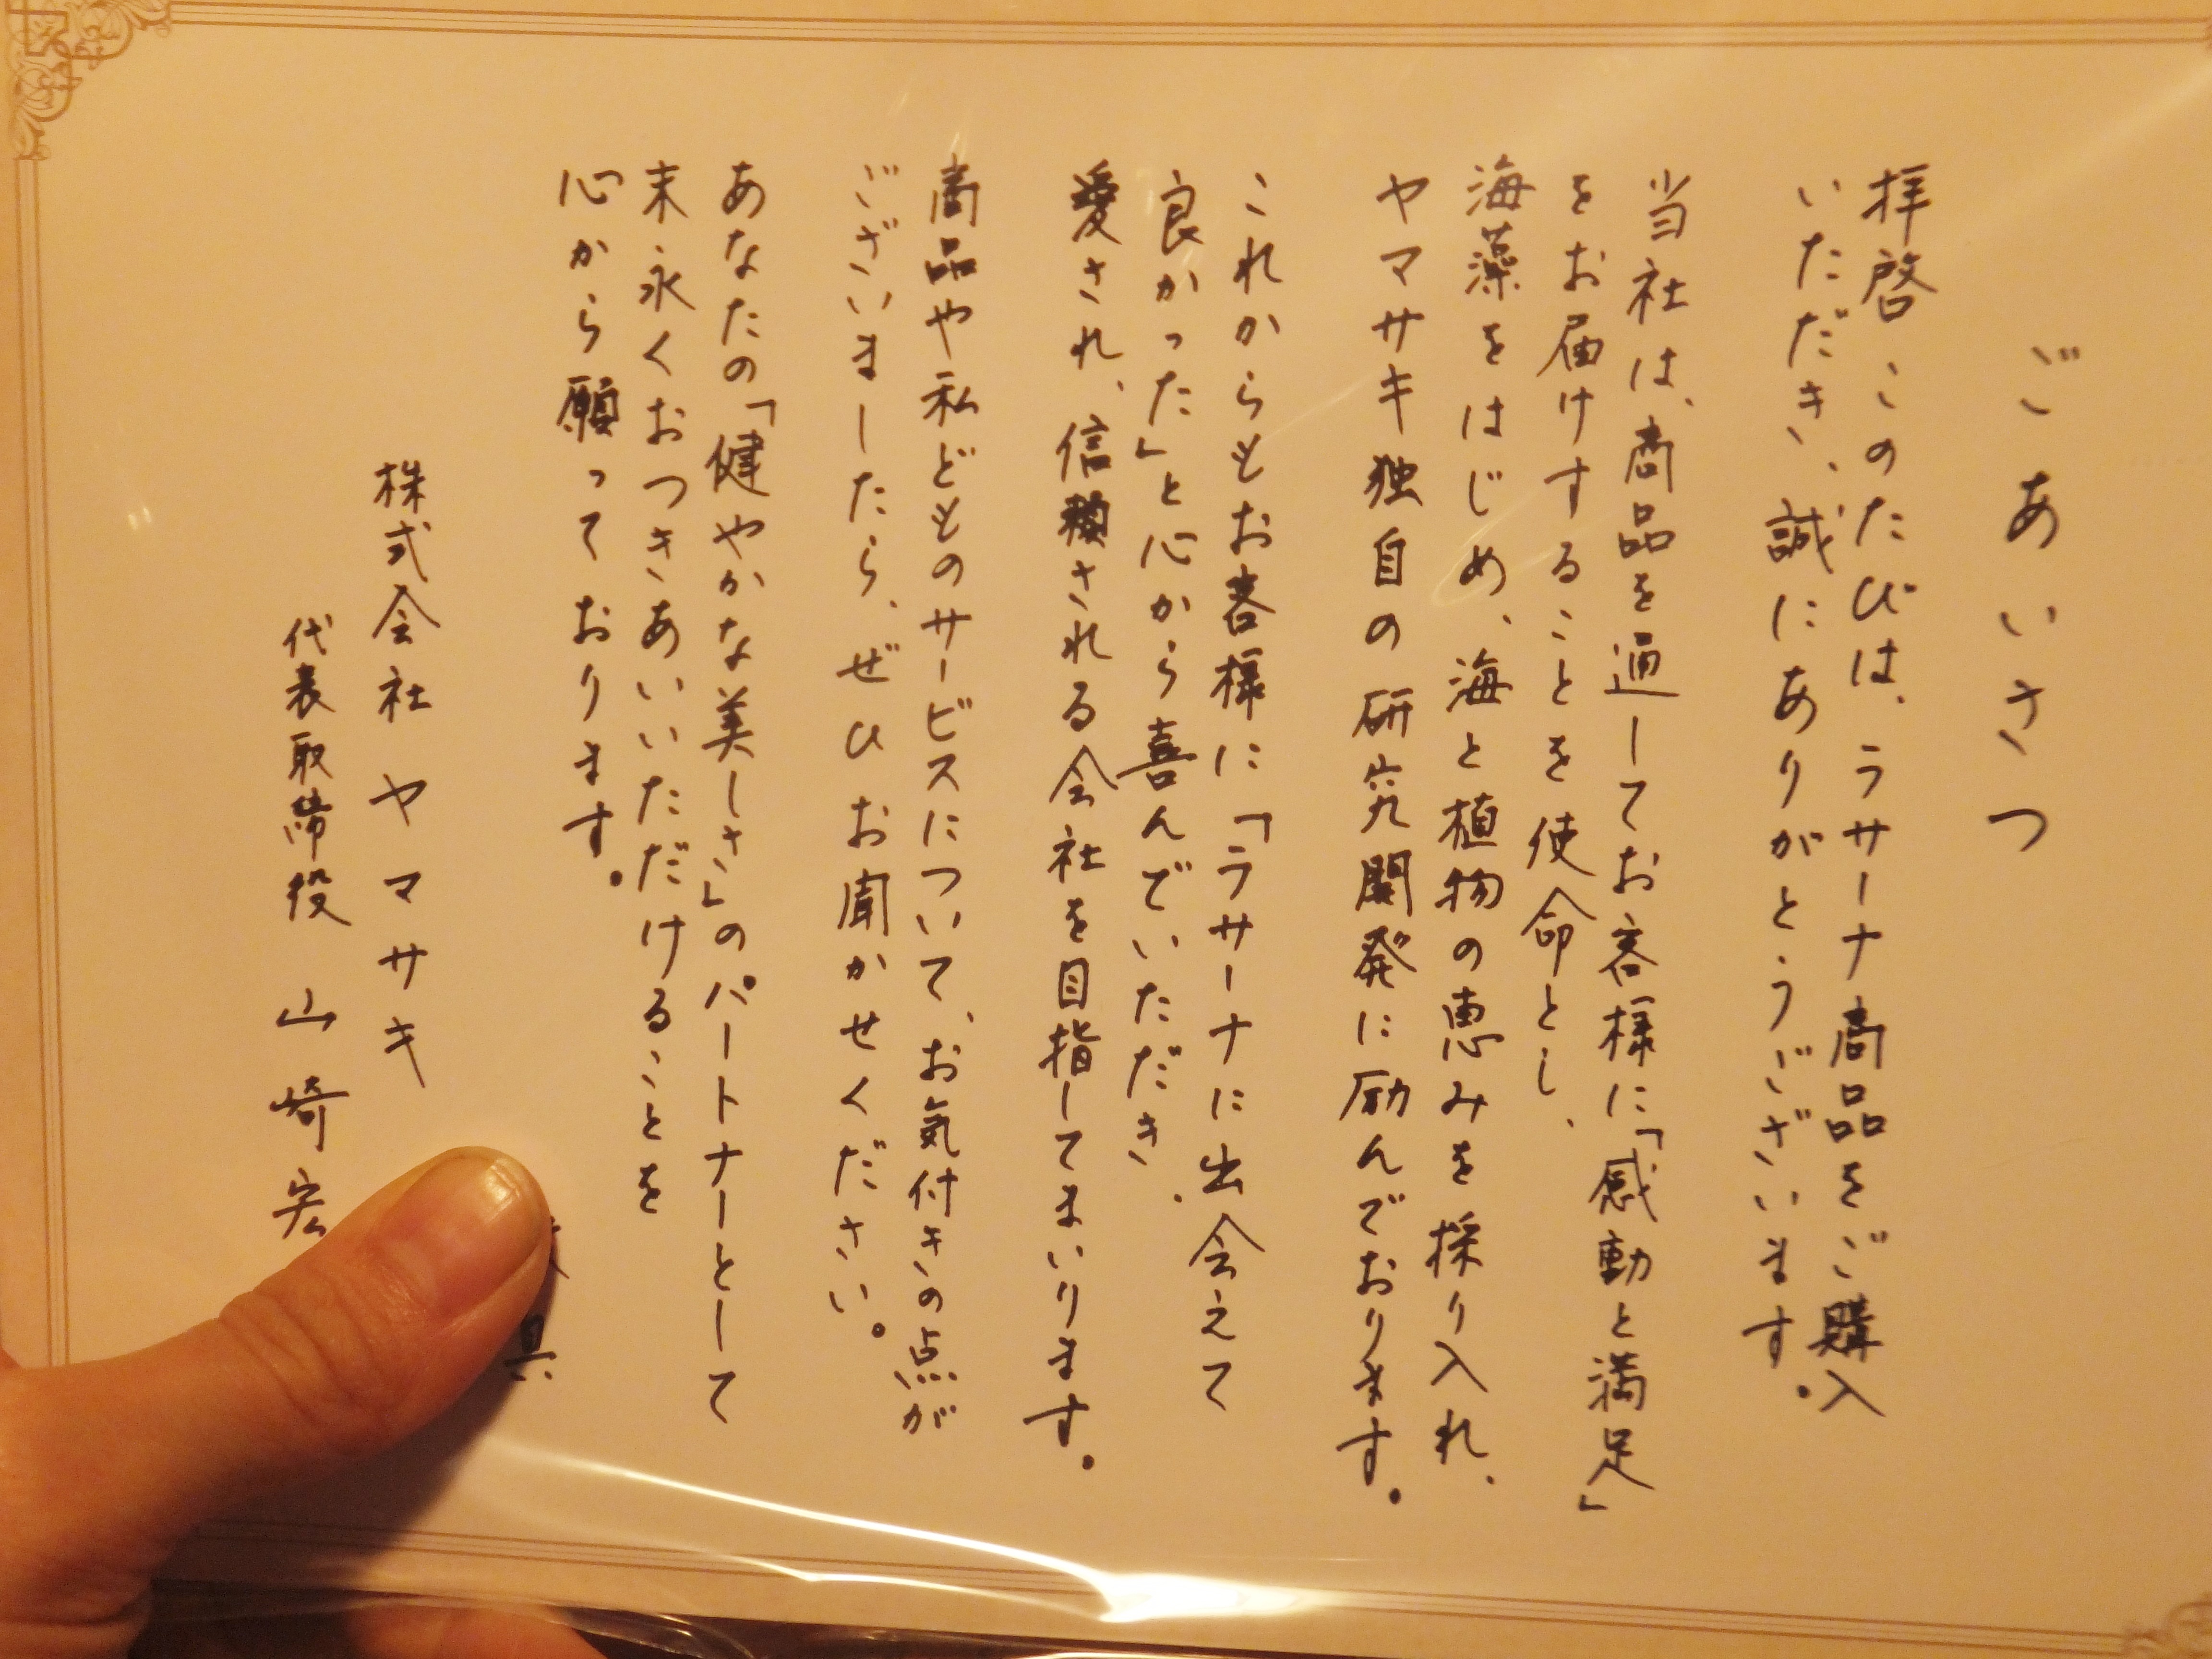 ごあいさつ
拝啓 このたびは、ラサーナ商品をご購入
いただき、誠にありがとうございます。
当社は、商品を通してお客様に「感動と満足」
をお届けすることを使命とし、
海藻をはじめ、海と植物の恵みを採り入れ、
ヤマサキ独自の研究開発に励んでおります。
これからもお客様に「ラサーナに出会えて
良かった」と心から喜んでいただき、
愛され、信頼される会社を目指してまいります。
商品や私どものサービスについて、お気付きの点が
ございましたら、ぜひお聞かせください。
あなたの「健やかな美しさ」のパートナーとして
末永くおつきあいいただけることを
心から願っております。
具
株式会社ヤマサキ
代表取締役 山崎宏